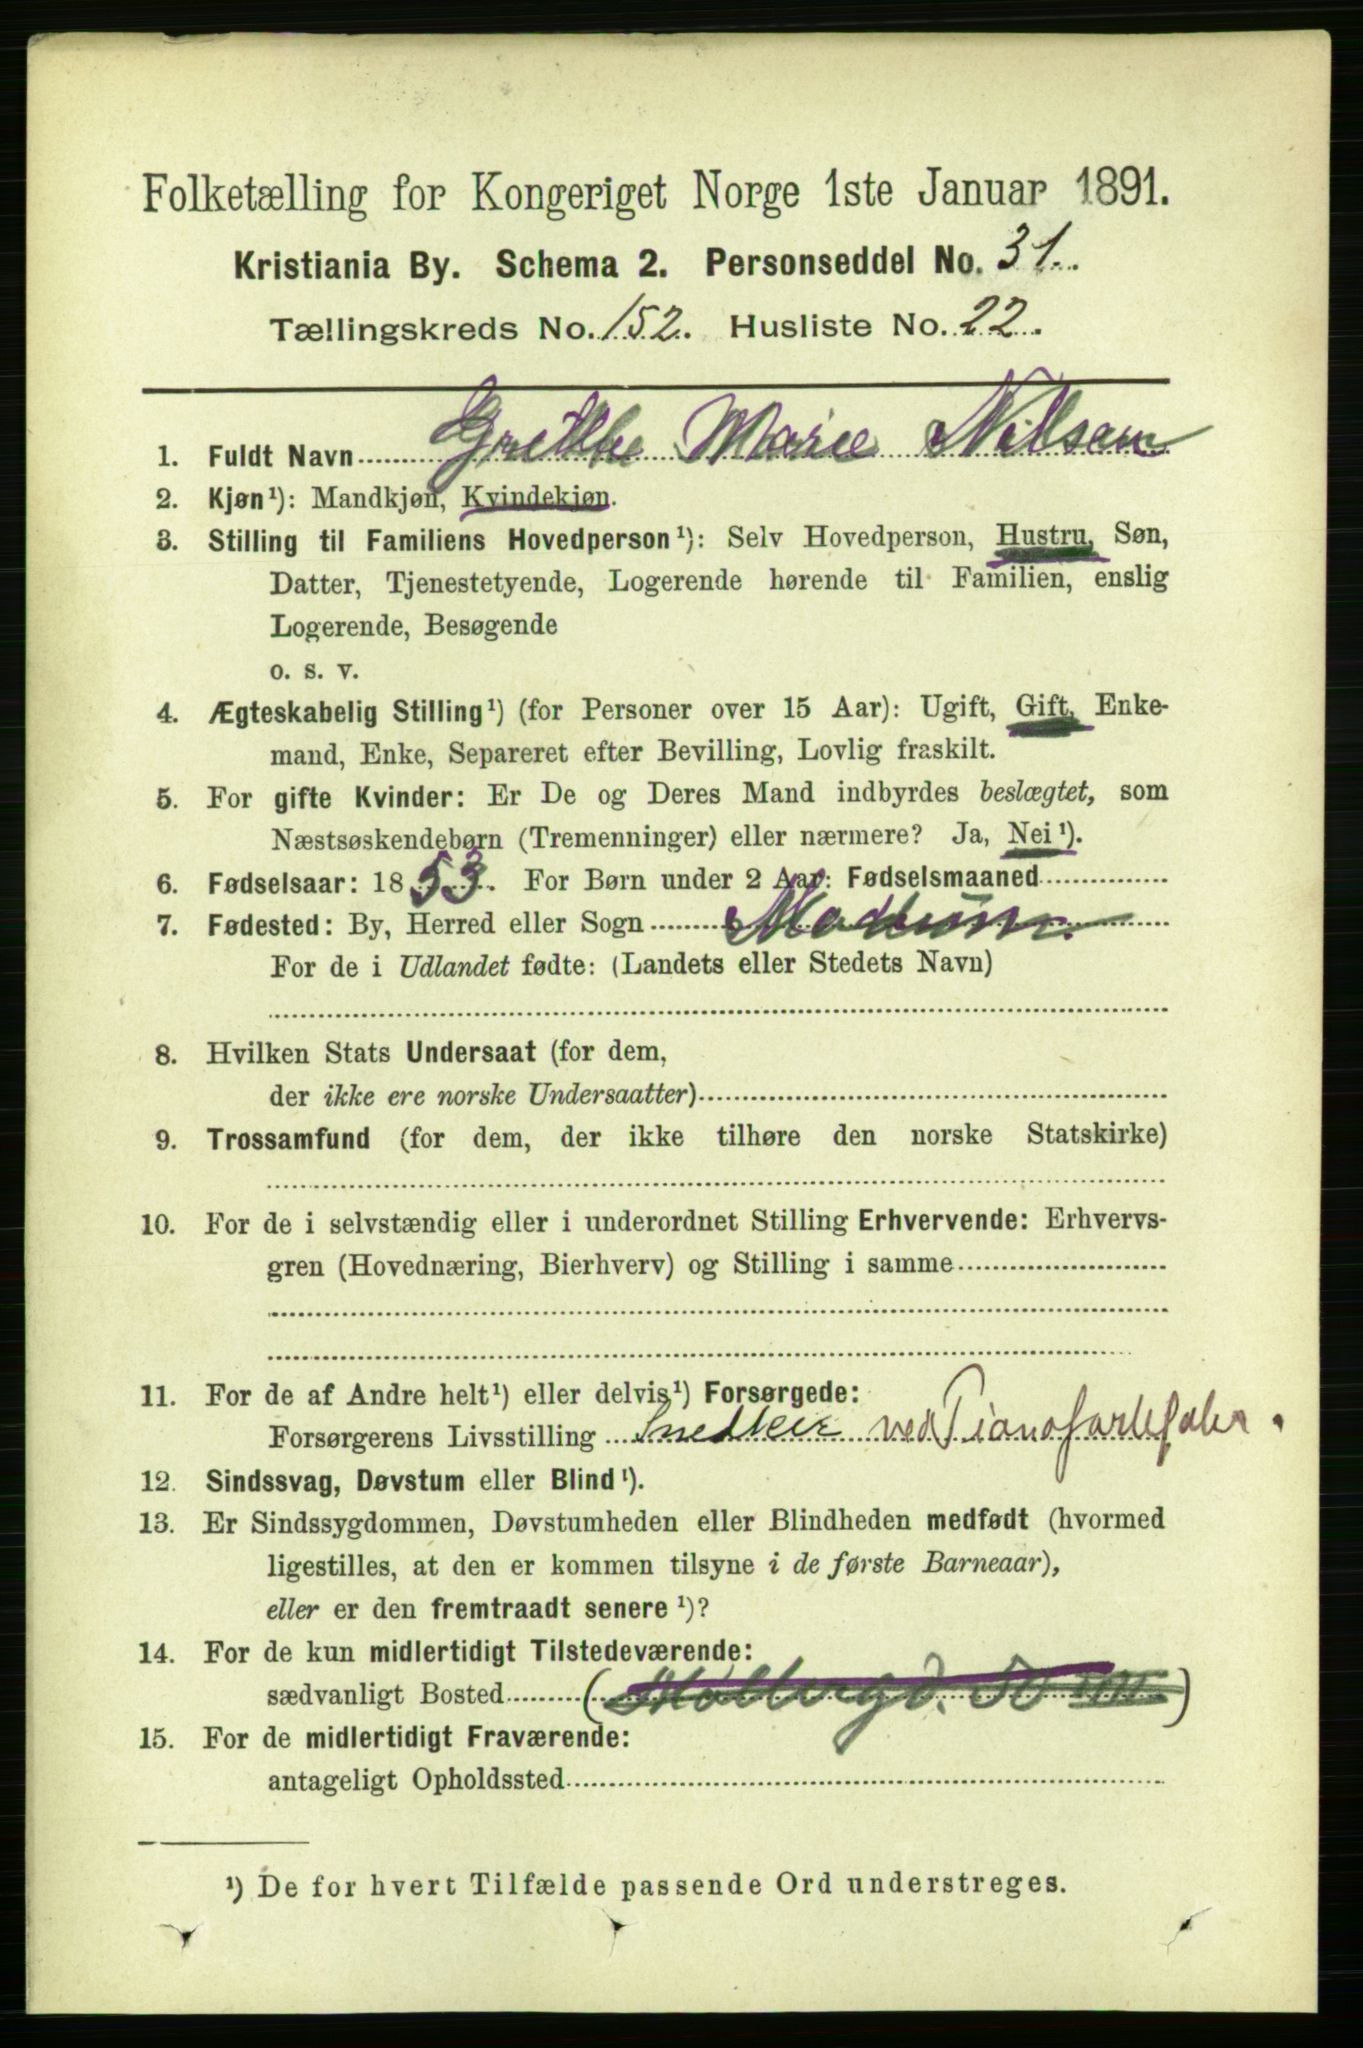 Folketælling for Kongeriget Norge 1ste Januar 1891.
Kristiania By. Schema 2. Personseddel No. 31.
Tællingskreds No. 152. Husliste No. 22.
1. Fuldt Navn Grethe Marie Nilsen
2. Kjøn¹): Mandkjøn, Kvindekjøn.
3. Stilling til Familiens Hovedperson¹): Selv Hovedperson, Hustru, Søn,
Datter, Tjenestetyende, Logerende hørende til Familien, enslig
Logerende, Besøgende
o. s. v.
4. Ægteskabelig Stilling¹) (for Personer over 15 Aar): Ugift, Gift, Enke-
mand, Enke, Separeret efter Bevilling, Lovlig fraskilt.
5. For gifte Kvinder: Er De og Deres Mand indbyrdes beslægtet, som
Næstsøskendebørn (Tremenninger) eller nærmere? Ja, Nei¹).
6. Fødselsaar: 1853. For Børn under 2 Aar: Fødselsmaaned
7. Fødested: By, Herred eller Sogn Modum
For de i Udlandet fødte: (Landets eller Stedets Navn)
8. Hvilken Stats Undersaat (for dem,
der ikke ere norske Undersaatter)
9. Trossamfund (for dem, der ikke tilhøre den norske Statskirke)
10. For de i selvstændig eller i underordnet Stilling Erhvervende: Erhvervs-
gren (Hovednæring, Bierhverv) og Stilling i samme
11. For de af Andre helt¹) eller delvis¹) Forsørgede:
Forsørgerens Livsstilling Snedker ved Pianofortefabr.
12. Sindssvag, Døvstum eller Blind¹).
13. Er Sindssygdommen, Døvstumheden eller Blindheden medfødt (hvormed
ligestilles, at den er kommen tilsyne i de første Barneaar),
eller er den fremtraadt senere¹)?
14. For de kun midlertidigt Tilstedeværende:
sædvanligt Bosted
15. For de midlertidigt Fraværende:
antageligt Opholdssted
¹) De for hvert Tilfælde passende Ord understreges.